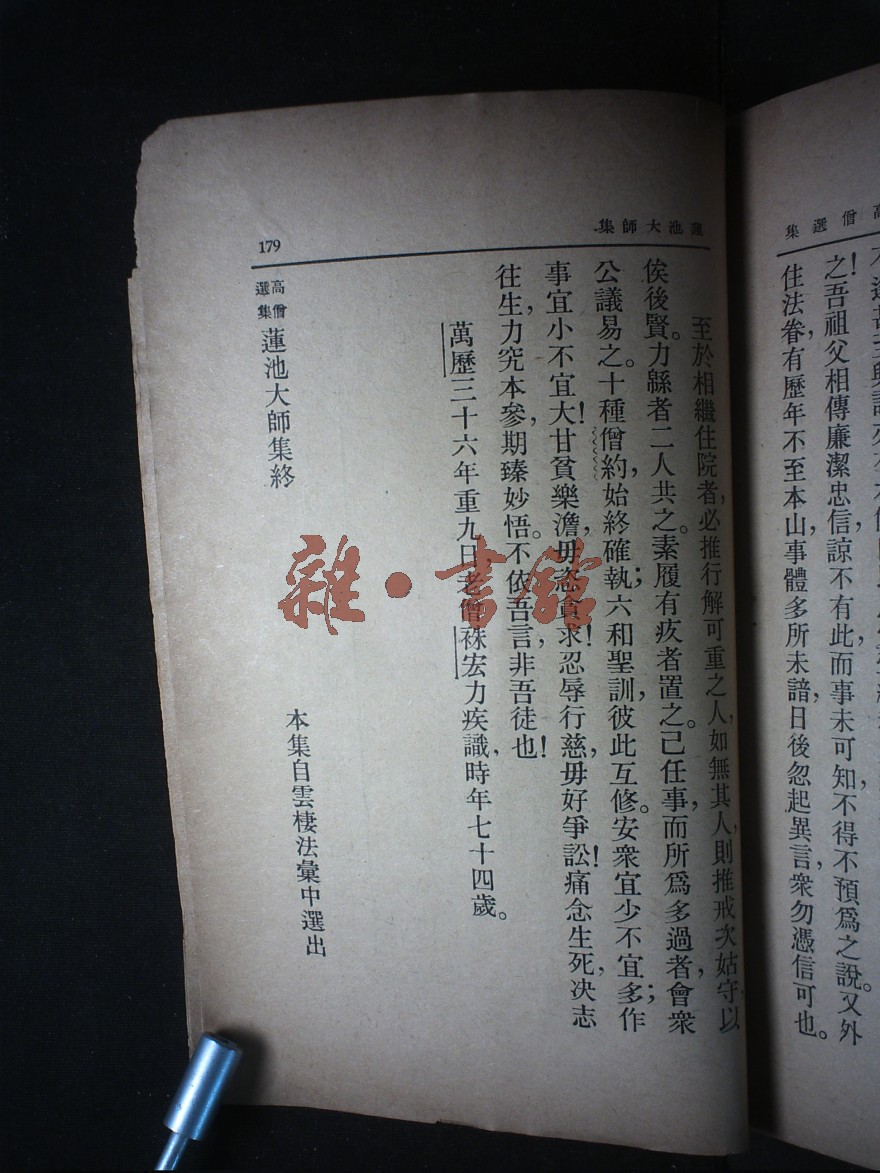 高僧選集
之!吾祖父相傳廉潔忠信,諒不有此,而事未可知,不得不預爲之說。又外
住法眷,有歷年不至本山,事體多所未諳,日後忽起異言,衆勿憑信可也。
蓮池大師集
179
至於相繼住院者,必推行解可重之人,如無其人,則推戒次姑守,以
俟後賢。力緜者二人共之。素履有疚者置之。己任事,而所爲多過者,會衆
公議易之。十種僧約,始終確執;六和聖訓,彼此互修。安衆宜少不宜多;作
事宜小不宜大!甘貧樂澹,毋恣貪求!忍辱行慈,毋好爭訟!痛念生死,决志
往生,力究本參,期臻妙悟。不依吾言,非吾徒也!
萬歷三十六年重九日,老僧袾宏力疾識,時年七十四歲。
高僧選集 蓮池大師集終
本集自雲棲法彙中選出
雜·書館